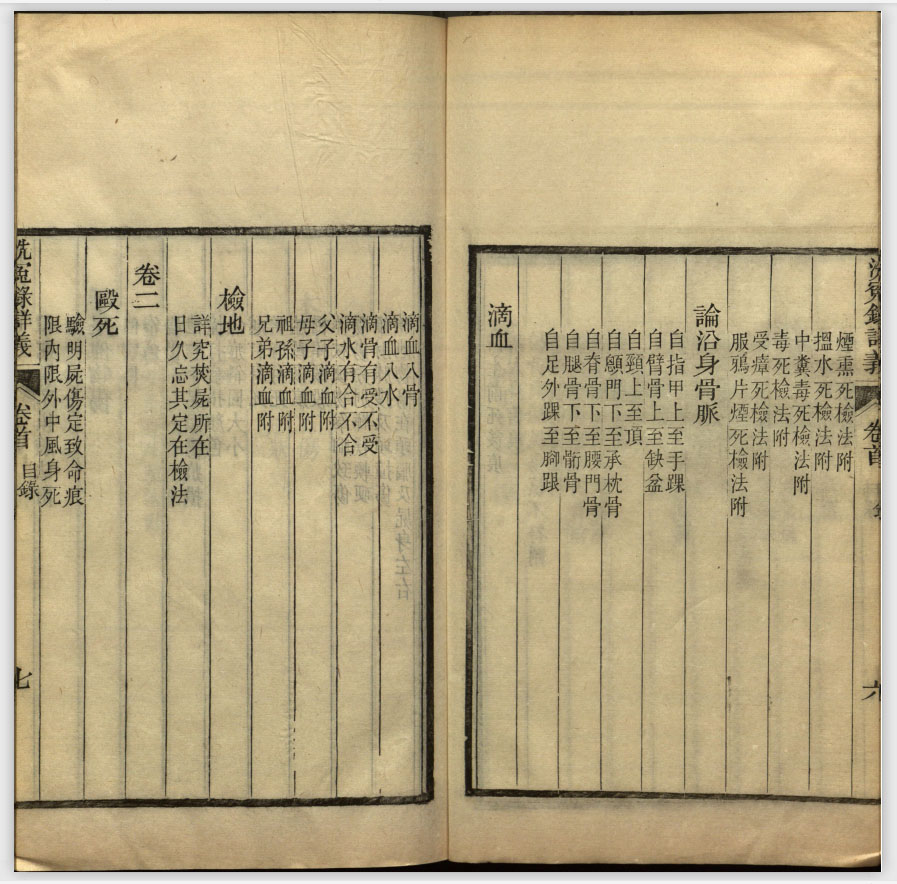 洗冤錄詳義
卷首
六
煙熏死檢法附
搵水死檢法附
中糞毒死檢法附
毒死檢法附
受瘴死檢法附
服鴉片煙死檢法附
論沿身骨脈
自指甲上至手踝
自臂骨上至缺盆
自頸上至頂
自顖門下至承枕骨
自脊骨下至腰門骨
自腿骨下至䯒骨
自足外踝至腳跟
滴血
滴血入骨
滴血入水
滴骨有受不受
滴水有合不合
父子滴血附
母子滴血附
祖孫滴血附
兄弟滴血附
檢地
詳究焚屍所在
日久忘其定在檢法
卷二
毆死
驗明屍傷定致命痕
限內限外中風身死
洗冤錄詳義
卷首
目錄
七